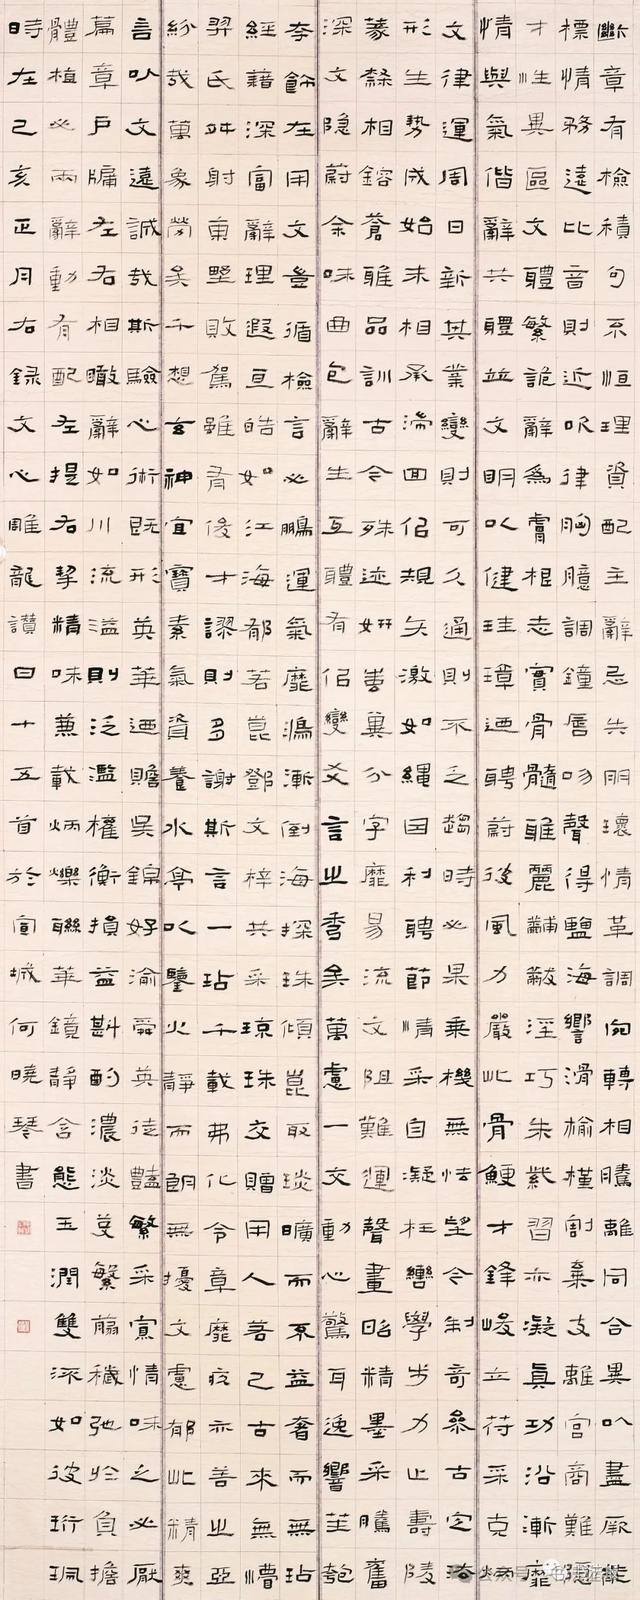 斷章有檢積句不恒理資配主辭忌失朋環情革調宛轉相騰離同合異以盡厥能
標情務遠比音則近吹律胸臆調鐘脣吻聲得鹽海響滑榆槿割棄支離宮商難隱
才性異區文體繁詭辭為膚根志實骨髓雅麗黼黻淫巧朱紫習亦凝真功沿漸靡
情與氣偕辭共體並文明以健珪璋迺聘蔚彼風力嚴此骨鯁才鋒峻立符采克炳
文律運周日新其業變則可久通則不乏趨時必果乘機無怯望今制奇參古定法
形生勢成始末相承湍回似規矢激如繩因利騁節情采自凝枉轡學步力止壽陵
篆隸相鎔蒼雅品訓古今殊迹妍蚩異分字靡易流文阻難運聲畫昭精墨采騰奮
深文隱蔚余味曲包辭生互體有似變爻言之秀矣萬慮一交動心驚耳逸響笙匏
夸飾在用文豈循檢言必鵬運氣靡鴻漸倒海探珠傾崑取琰曠而不益奢而無玷
經籍深富辭理遐亘皓如江海郁若崑鄧文梓共采瓊珠交贈用人若己古來無懵
羿氏舛射東野敗駕雖有俊才謬則多謝斯言一玷千載弗化令章靡疚亦善之亞
紛哉萬象勞矣千想玄神宜寶素氣資養水停以鑒火靜而朗無擾文慮郁此精爽
言以文遠誠哉斯驗心術既形英華迺贍吳錦好渝舜英徒豔繁采寡情味之必厭
篇章戶牖左右相瞰辭如川流溢則泛濫權衡損益斟酌濃淡芟繁剪穢弛於負擔
體植必兩辭動有配左提右挈精味兼載炳爍聯華鏡靜含態玉潤雙流如彼珩珮
時在己亥正月右錄文心雕龍讚曰十五首於宣城何曉琴書